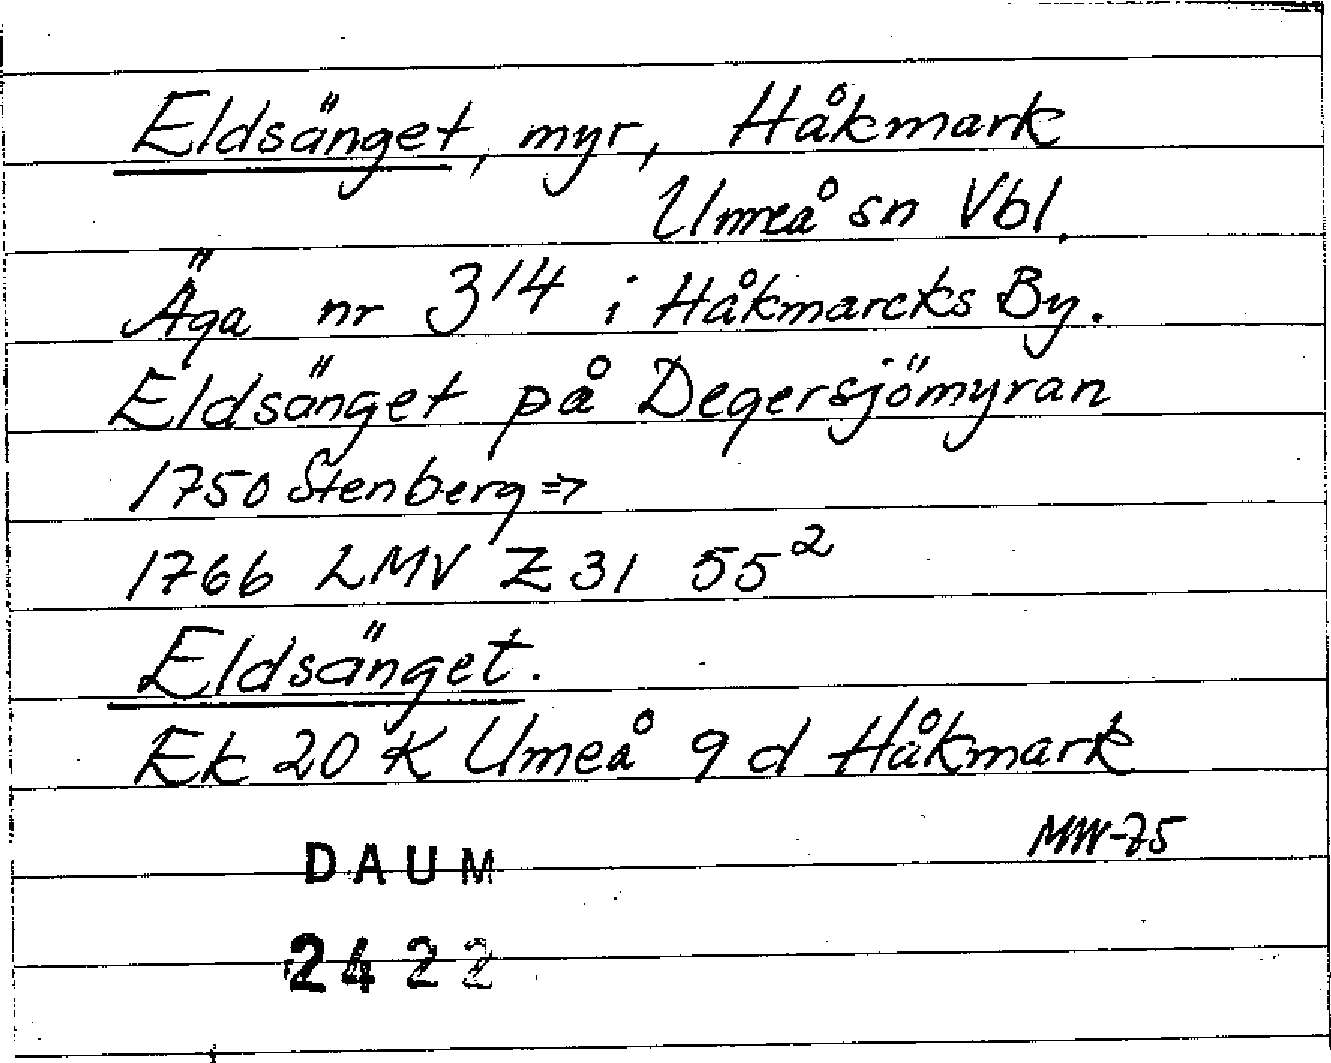 Eldsänget, myr, Håkmark
Umeå sn Vbl.
Äga nr 314 i Håkmarcks By.
Eldsänget på Degersjömyran
1750 Stenberg ⇒
1766 LMV Z 31 55²
Eldsänget.
Ek 20 K Umeå 9 d Håkmark
MW-75
DAUM
2422